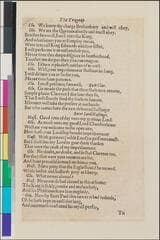 The Tragedy
Glo. We know thy charge Brakenbury, and will obey.
Glo. We are the Queenes abiects and must obey.
Brother farewell, I will vnto the King,
And whatsoeuer you will employ me in,
Were it to call King Edwards widdow sister,
I will performe it
Meane time this deepe disgrace in brotherhood,
Touches me
Cla. I know it pleaseth neither of vs well.
Glo. Well, your imprisonment shall not be long,
I will deliuer you or lie for you,
Meane time haue patience.
Cla. I must perforce, farewell.
Glo. Go tread the path that thou shalt nere returne,
Simple plaine Clarence I doe loue thee so,
That I will shortly send thy soule to heauen,
If heauen will take the present at our hands:
But who comes here the new deliuered Hastings?
Enter Lord Hastings.
Hast. Good time of day vnto my gracious Lord.
Glo. As much vnto my good Lord Chamberlaine:
Well are you welcome to the open aire,
How hath your Lordship brookt imprisonment?
Hast. With patience (noble Lord) as prisoners must:
But I shall liue my Lord to giue them thankes
That were the cause of my imprisonment.
Glo. No doubt, no doubt, and so shall Clarence too,
For they that were your enemies are his,
And haue preuaild as much on him as you.
Hast. More pitty that the Eagle should be mewed,
While keihts and buzzards prey at liberty.
Glo. What newes abroad?
Hast. No newes so bad abroad as this at home:
The King is sickly, weake and melancholy,
And his Phisitions feare him mightily.
Glo. Now by Saint Paul this newes is bad indeede,
Oh he hath kept an euill diet long,
And ouermuch consum'd his royall person,